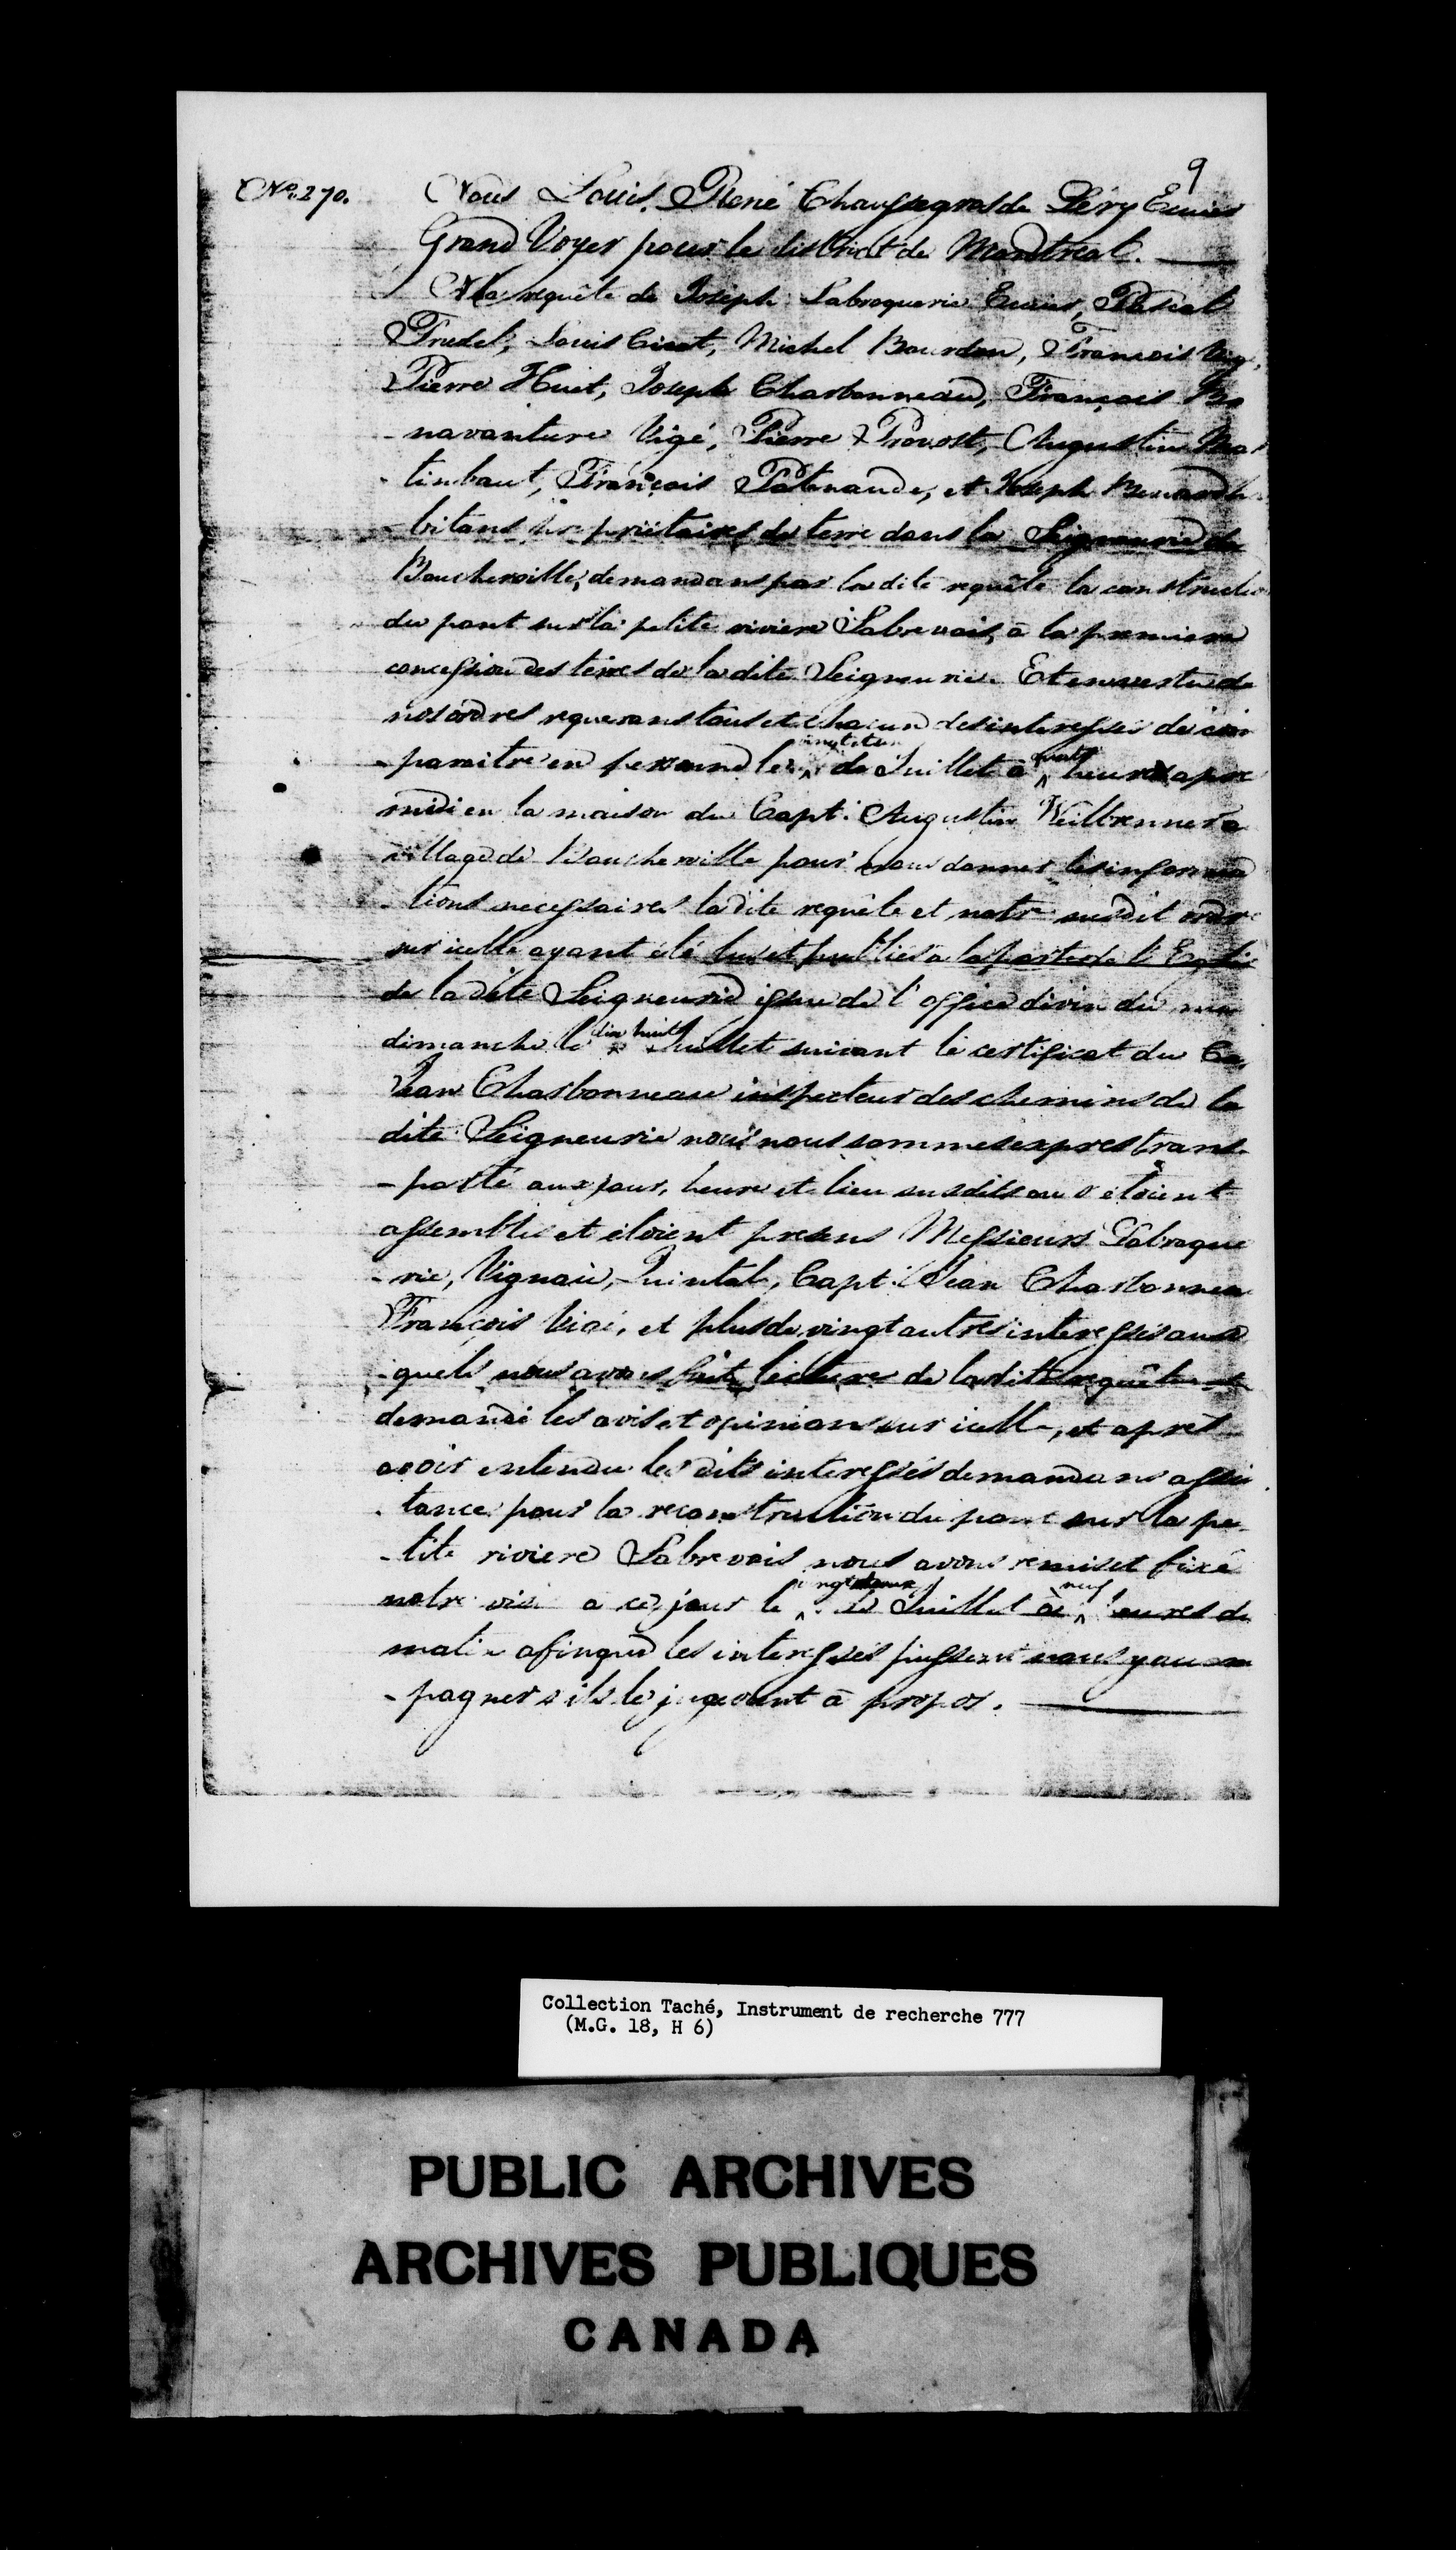 9
No. 270.
Nous Louis René Chaussegros de Léry Ecuier
Grand Voyer pour le district de Montreal.
A la requête de Joseph Labroquerie Ecuier, Pascal
Trudel, Louis, Michel Bourdon, François
Pierre Huet, Joseph Charbonneau, François Bo
-navanture Vigé, Pierre Provost, Augustin
-tinbaut, François Patenaude, et Joseph
-bitans propriétaires de terre dans la Seigneurie de
Boucherville, demandans par la dite requête la constructio
du pont sur la petite riviere Sabrevois, à la premiere
concession des terres de la dite Seigneurie. Et en vertu de
nos ordres requerans tous et chacun des interessés de com
-paraitre en personne le vingt et un de Juillet à quatre heures apre
midi en la maison du Capt. Augustin Weilbrenner a
village de Boucherville pour nous donner les informa
-tions necessaires la dite requête et notre susdit ordre
sur icelle ayant été lus et publiés a la porte de l'Eglise
de la dite Seigneurie issue de l'office divin du
dimanche le dix huit Juillet suivant le certificat du
Jean Charbonneau inspecteur des chemins de la
dite Seigneurie nous nous sommes expres trans
-porté aux jour, heure et lieu susdits ou s'etoient
assemblés et etoient presens Messieurs Labroque
-rie, Vignau, Quintal, Capt. Jean Charbonneau
François Vigé, et plus de vingt autres interessés aux
-quels nous avons fait lecture de la dite requête et
demandé les avis et opinions sur icelle, et apres
avoir entendu les dits interessés demandans assis
-tance pour la reconstruction du pont sur la pe
-tite riviere Sabrevois nous avons remis et fixé
notre visi a ce jour le vingt deux de Juillet à neuf heures du
matin afin que les interessés pussent nous y accom
-pagner s'ils le jugeoient à propos.
Collection Taché, Instrument de recherche 777
(M.G. 18, H 6)
PUBLIC ARCHIVES
ARCHIVES PUBLIQUES
CANADA